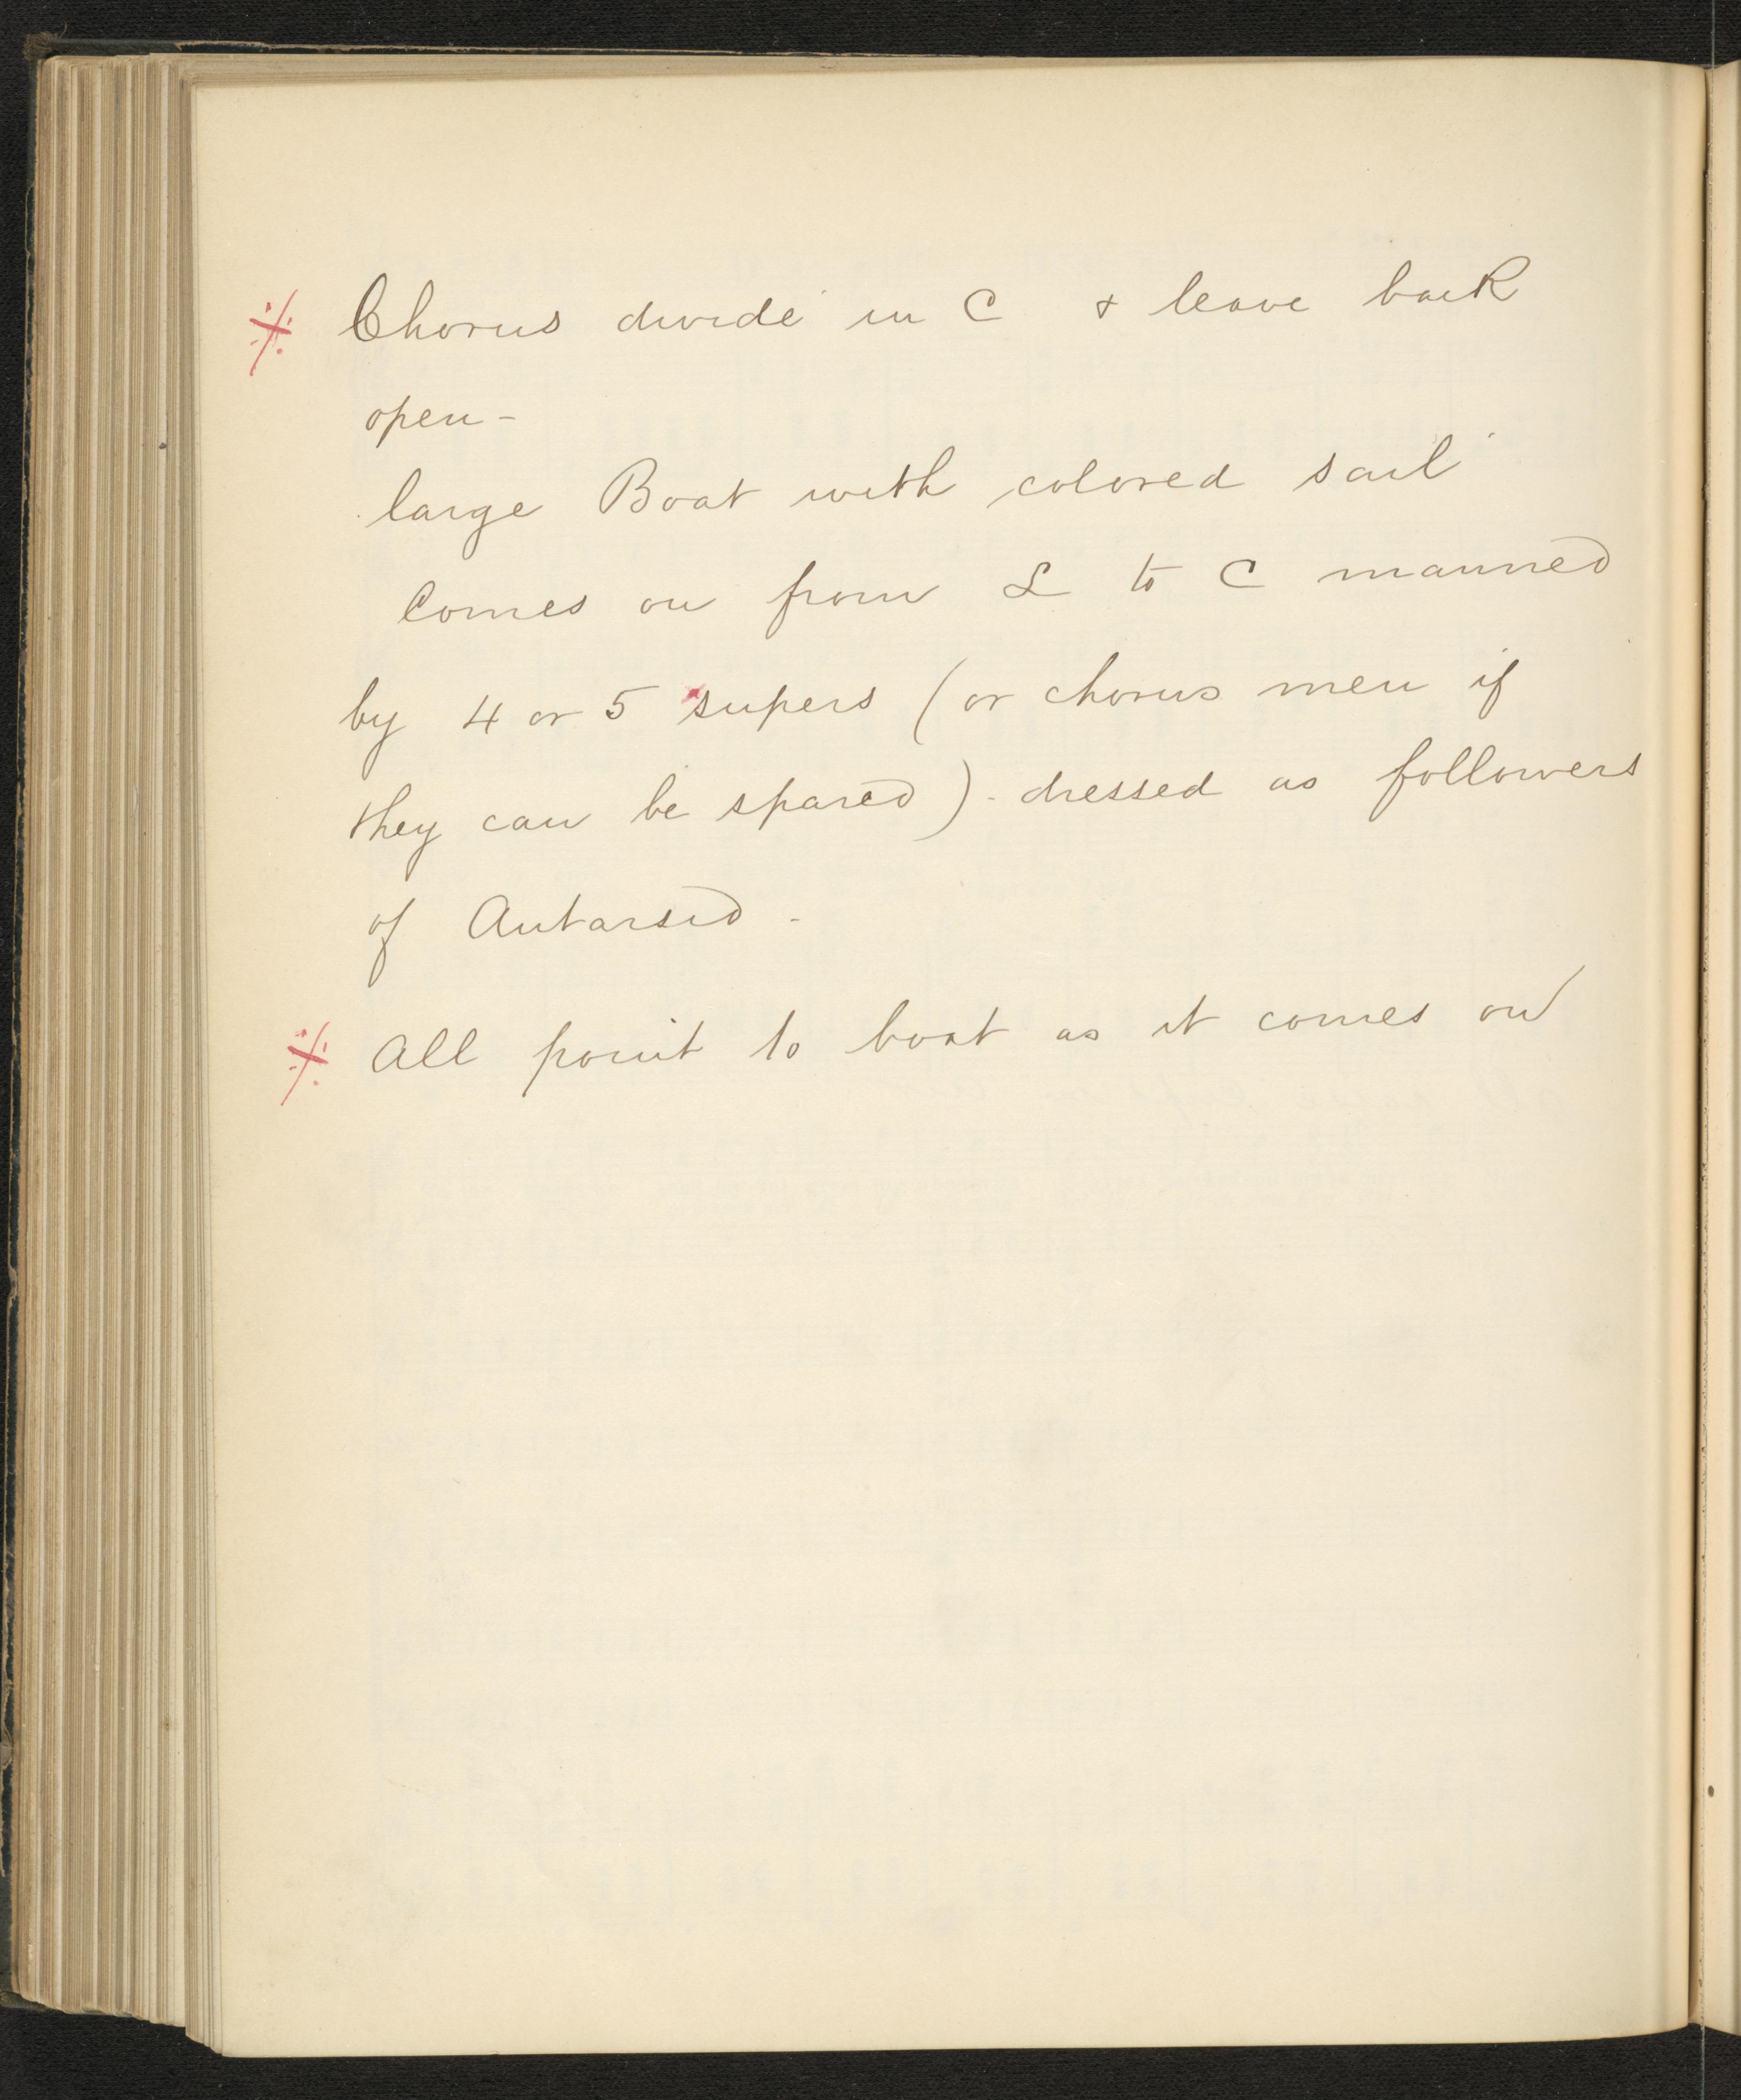 ※ Chorus divide in C & leave back
open -
large Boat with colored sail
Comes on from L to C manned
by 4 or 5 supers (or chorus men if
they can be spared) - dressed as followers
of Antarsid -
※ All point to boat as it comes on